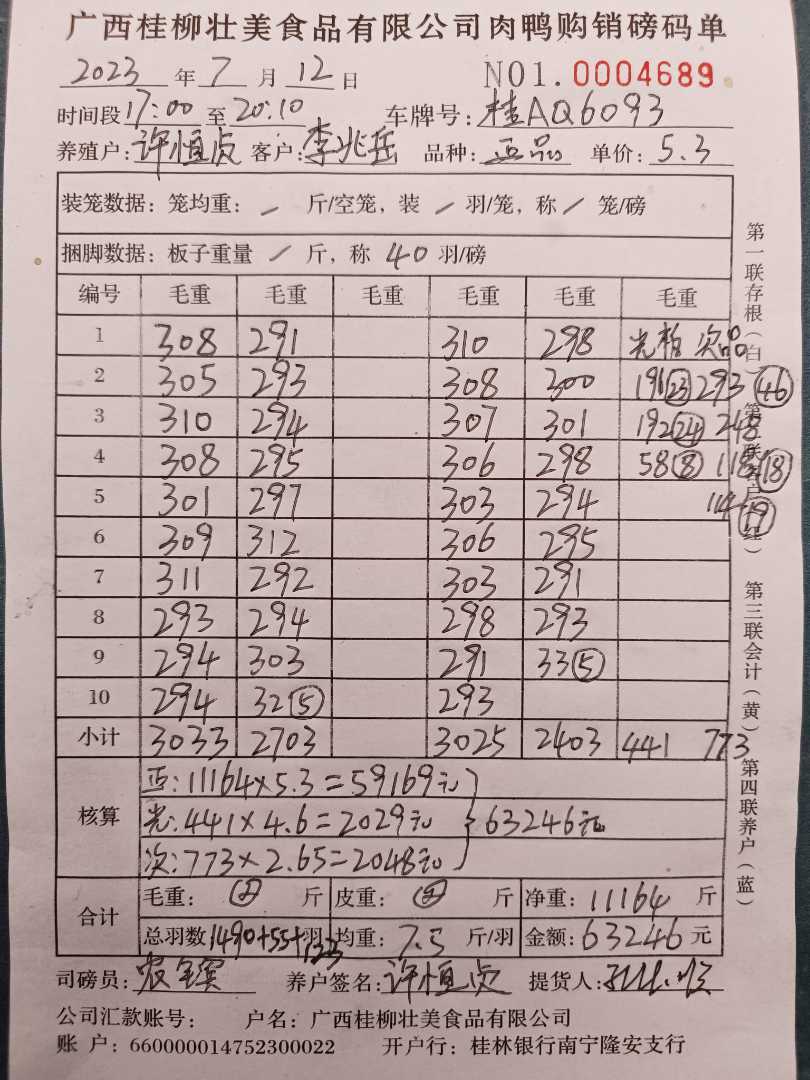 广西桂柳壮美食品有限公司肉鸭购销磅码单
2023 年 7 月 12 日 NO1.0004689
时间段 17:00 至 20:10 车牌号: 桂AQ6093
养殖户: 许恒贞 客户: 李兆岳 品种: 正品 单价: 5.3
装笼数据: 笼均重: / 斤/空笼, 装 / 羽/笼, 称 / 笼/磅
捆脚数据: 板子重量 / 斤, 称 40 羽/磅
编号 毛重 毛重 毛重 毛重 毛重 毛重
1 308 291 310 298 光 次品
2 305 293 308 300 191 23 293 46
3 310 294 307 301 192 24 248
4 308 295 306 298 58 8 118 18
5 301 297 303 294 114 19
6 309 312 306 295
7 311 292 303 291
8 293 294 298 293
9 294 303 291 33 5
10 294 32 5 293
小计 3033 2703 3025 2403 441 773
核算
正: 11164×5.3=59169元
光: 441×4.6=2029元 } 63246元
次: 773×2.65=2048元
合计
毛重: 斤 皮重: 斤 净重: 11164 斤
总羽数 1490+55+133 羽 均重: 7.5 斤/羽 金额: 63246 元
司磅员: 养户签名: 许恒贞 提货人:
公司汇款账号: 户名: 广西桂柳壮美食品有限公司
账 户: 660000014752300022 开户行: 桂林银行南宁隆安支行
第一联存根(白) 第二联客户(红) 第三联会计(黄) 第四联养户(蓝)